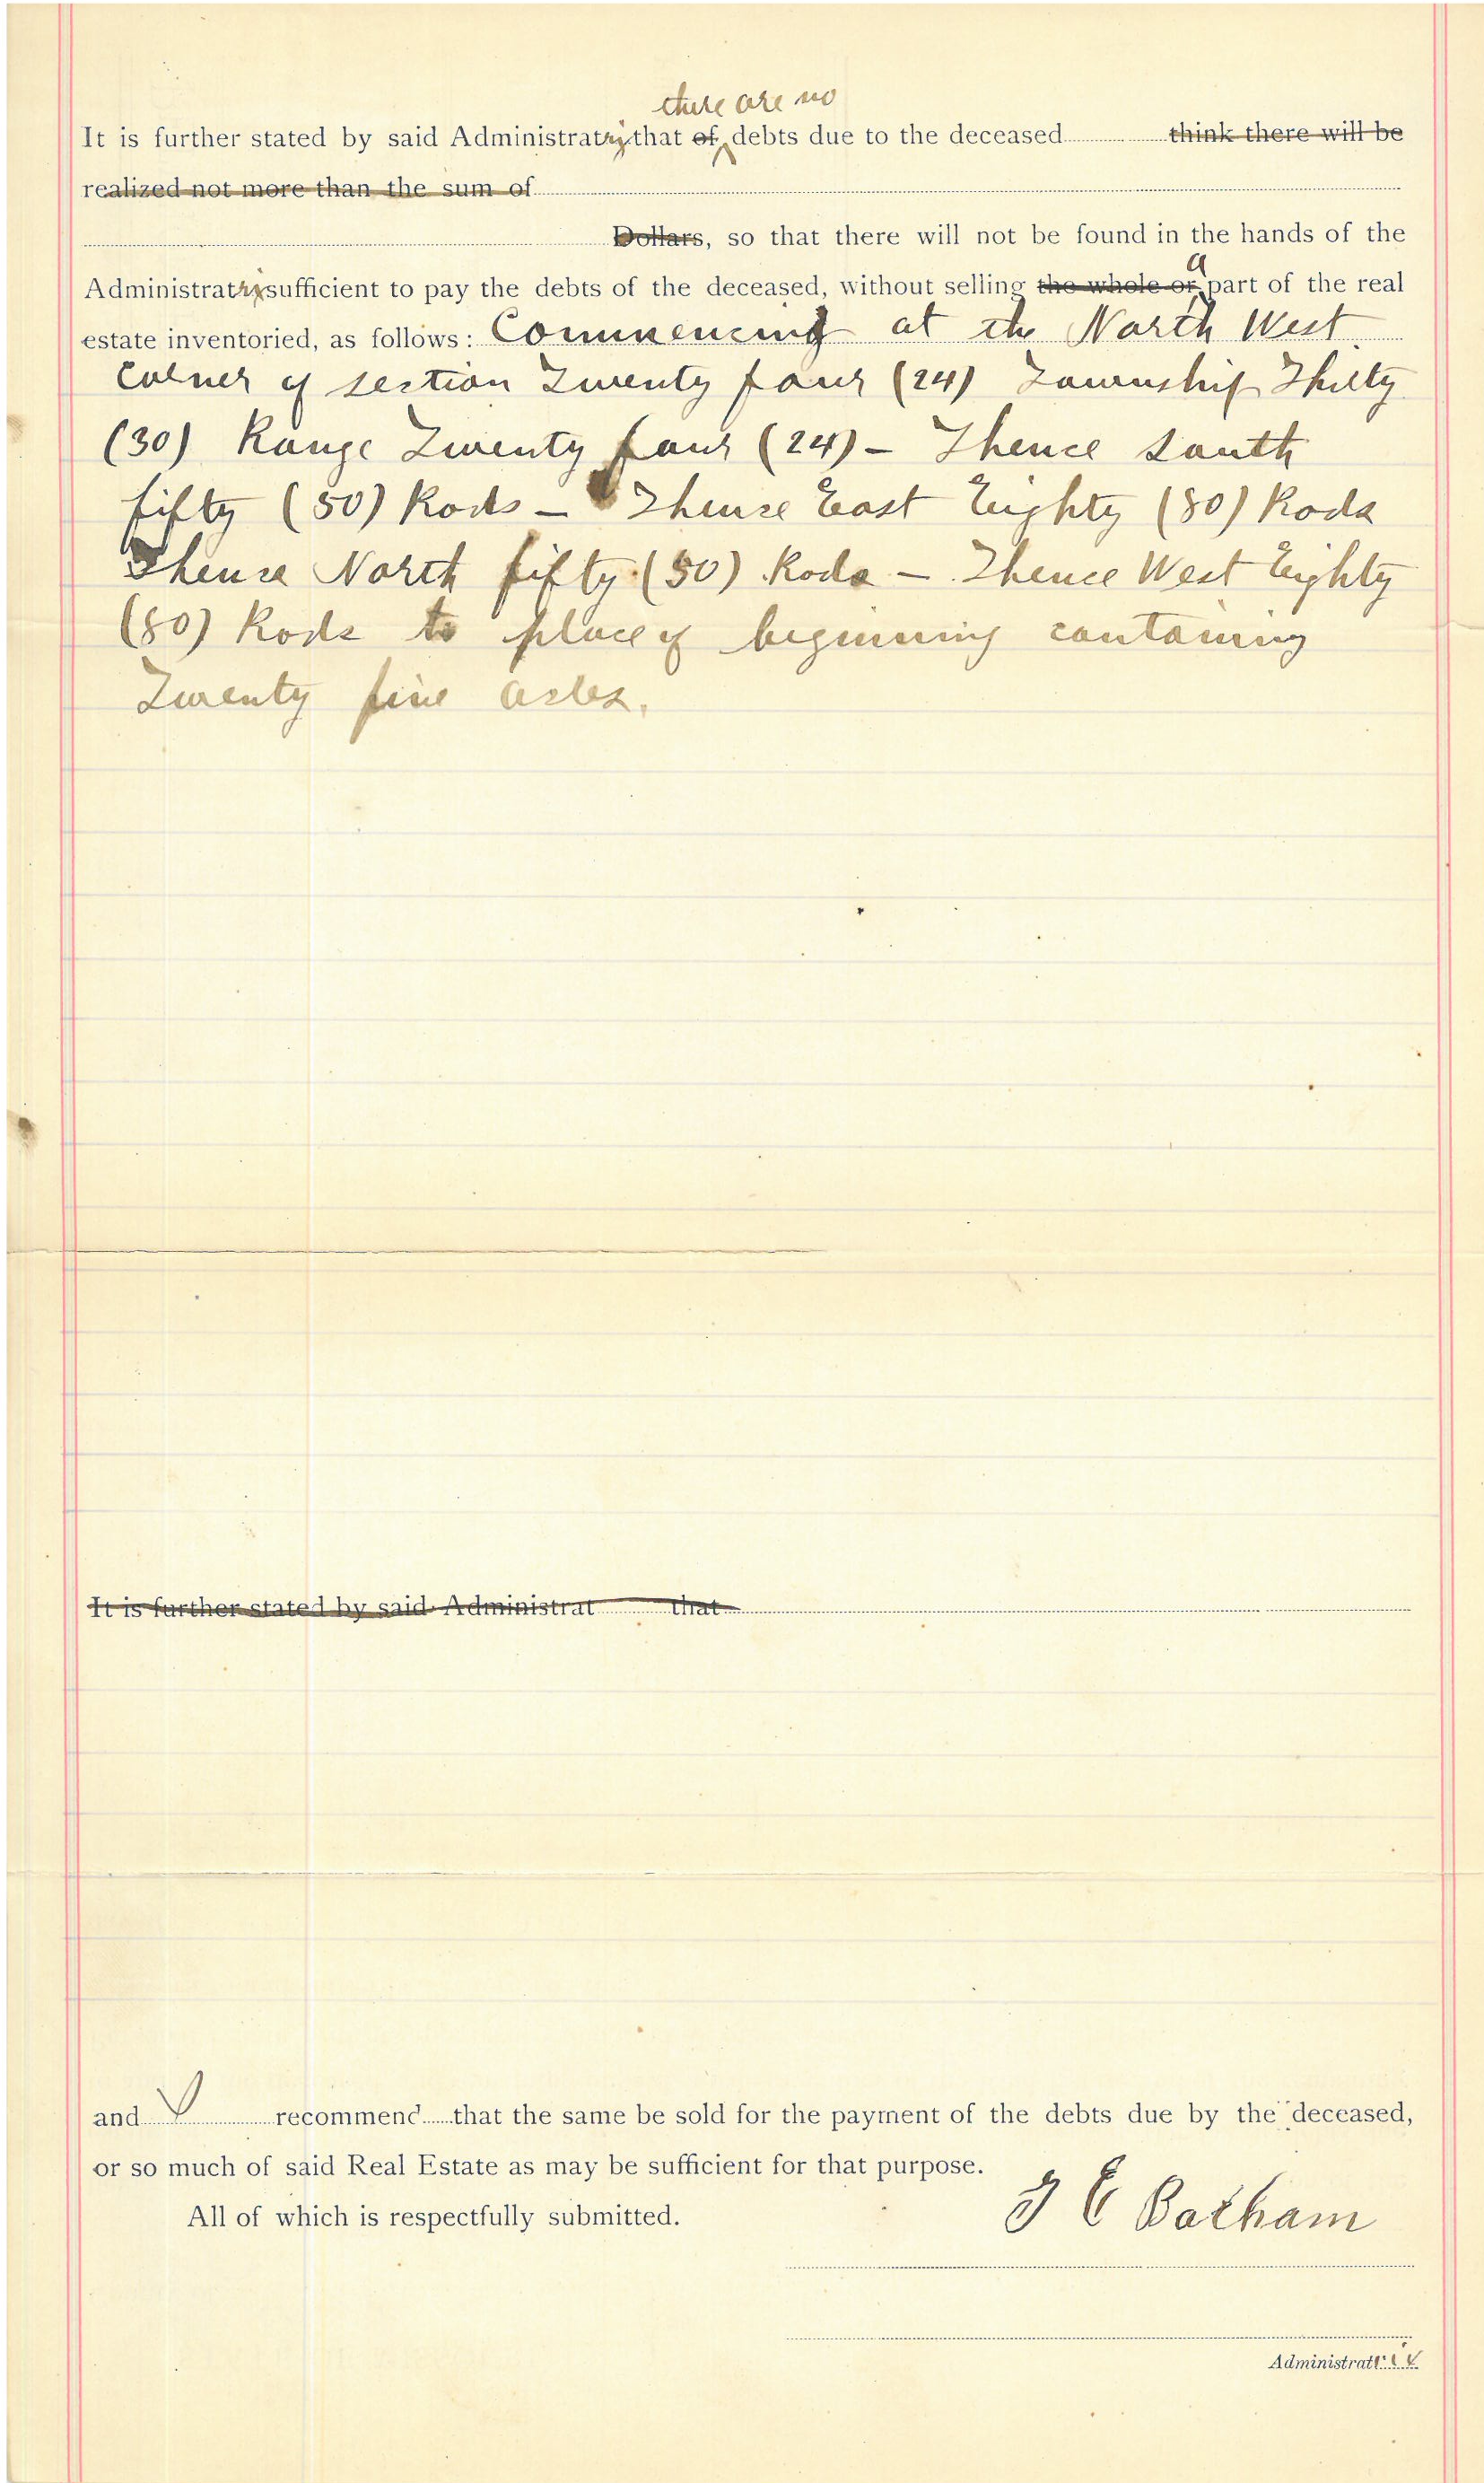 there are no
It is further stated by said Administratrix that of debts due to the deceased think there will be
realized not more than the sum of
Dollars, so that there will not be found in the hands of the
a
Administratrix sufficient to pay the debts of the deceased, without selling the whole or part of the real
estate inventoried, as follows: Commencing at the North West
Corner of section Twenty four (24) Township Thirty
(30) Range Twenty four (24) - Thence South
fifty (50) Rods - Thence East Eighty (80) Rods
Thence North fifty (50) Rods - Thence West Eighty
(80) Rods to place of beginning containing
Twenty five acres.
It is further stated by said Administrat that
and I recommend that the same be sold for the payment of the debts due by the deceased,
or so much of said Real Estate as may be sufficient for that purpose.
All of which is respectfully submitted.
E Batham
Administratrix